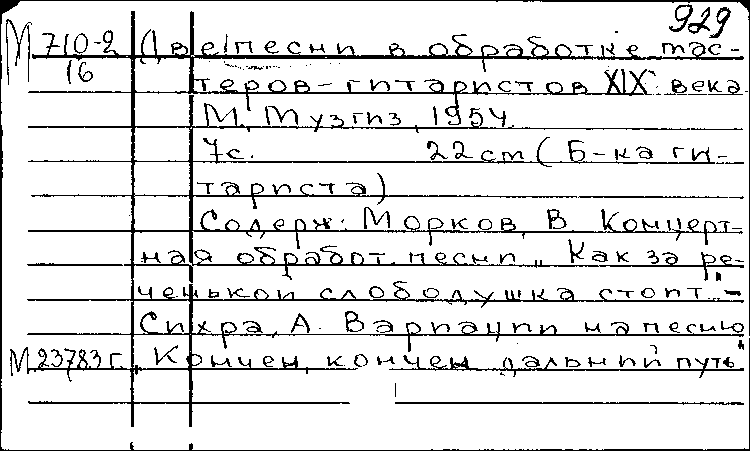 929
М 710-2 Две песни в обработке мас-
16 теров-гитаристов XIX века
М., Музгиз, 1954.
7с. 22см (Б-ка ги-
тариста)
Содерж: Морков, В. Концерт-
ная обработ. песни „Как за ре-
ченькой слободушка стоит" -
Сихра, А. Вариации на песню
М.23783г. „Кончен, кончен дальний путь"